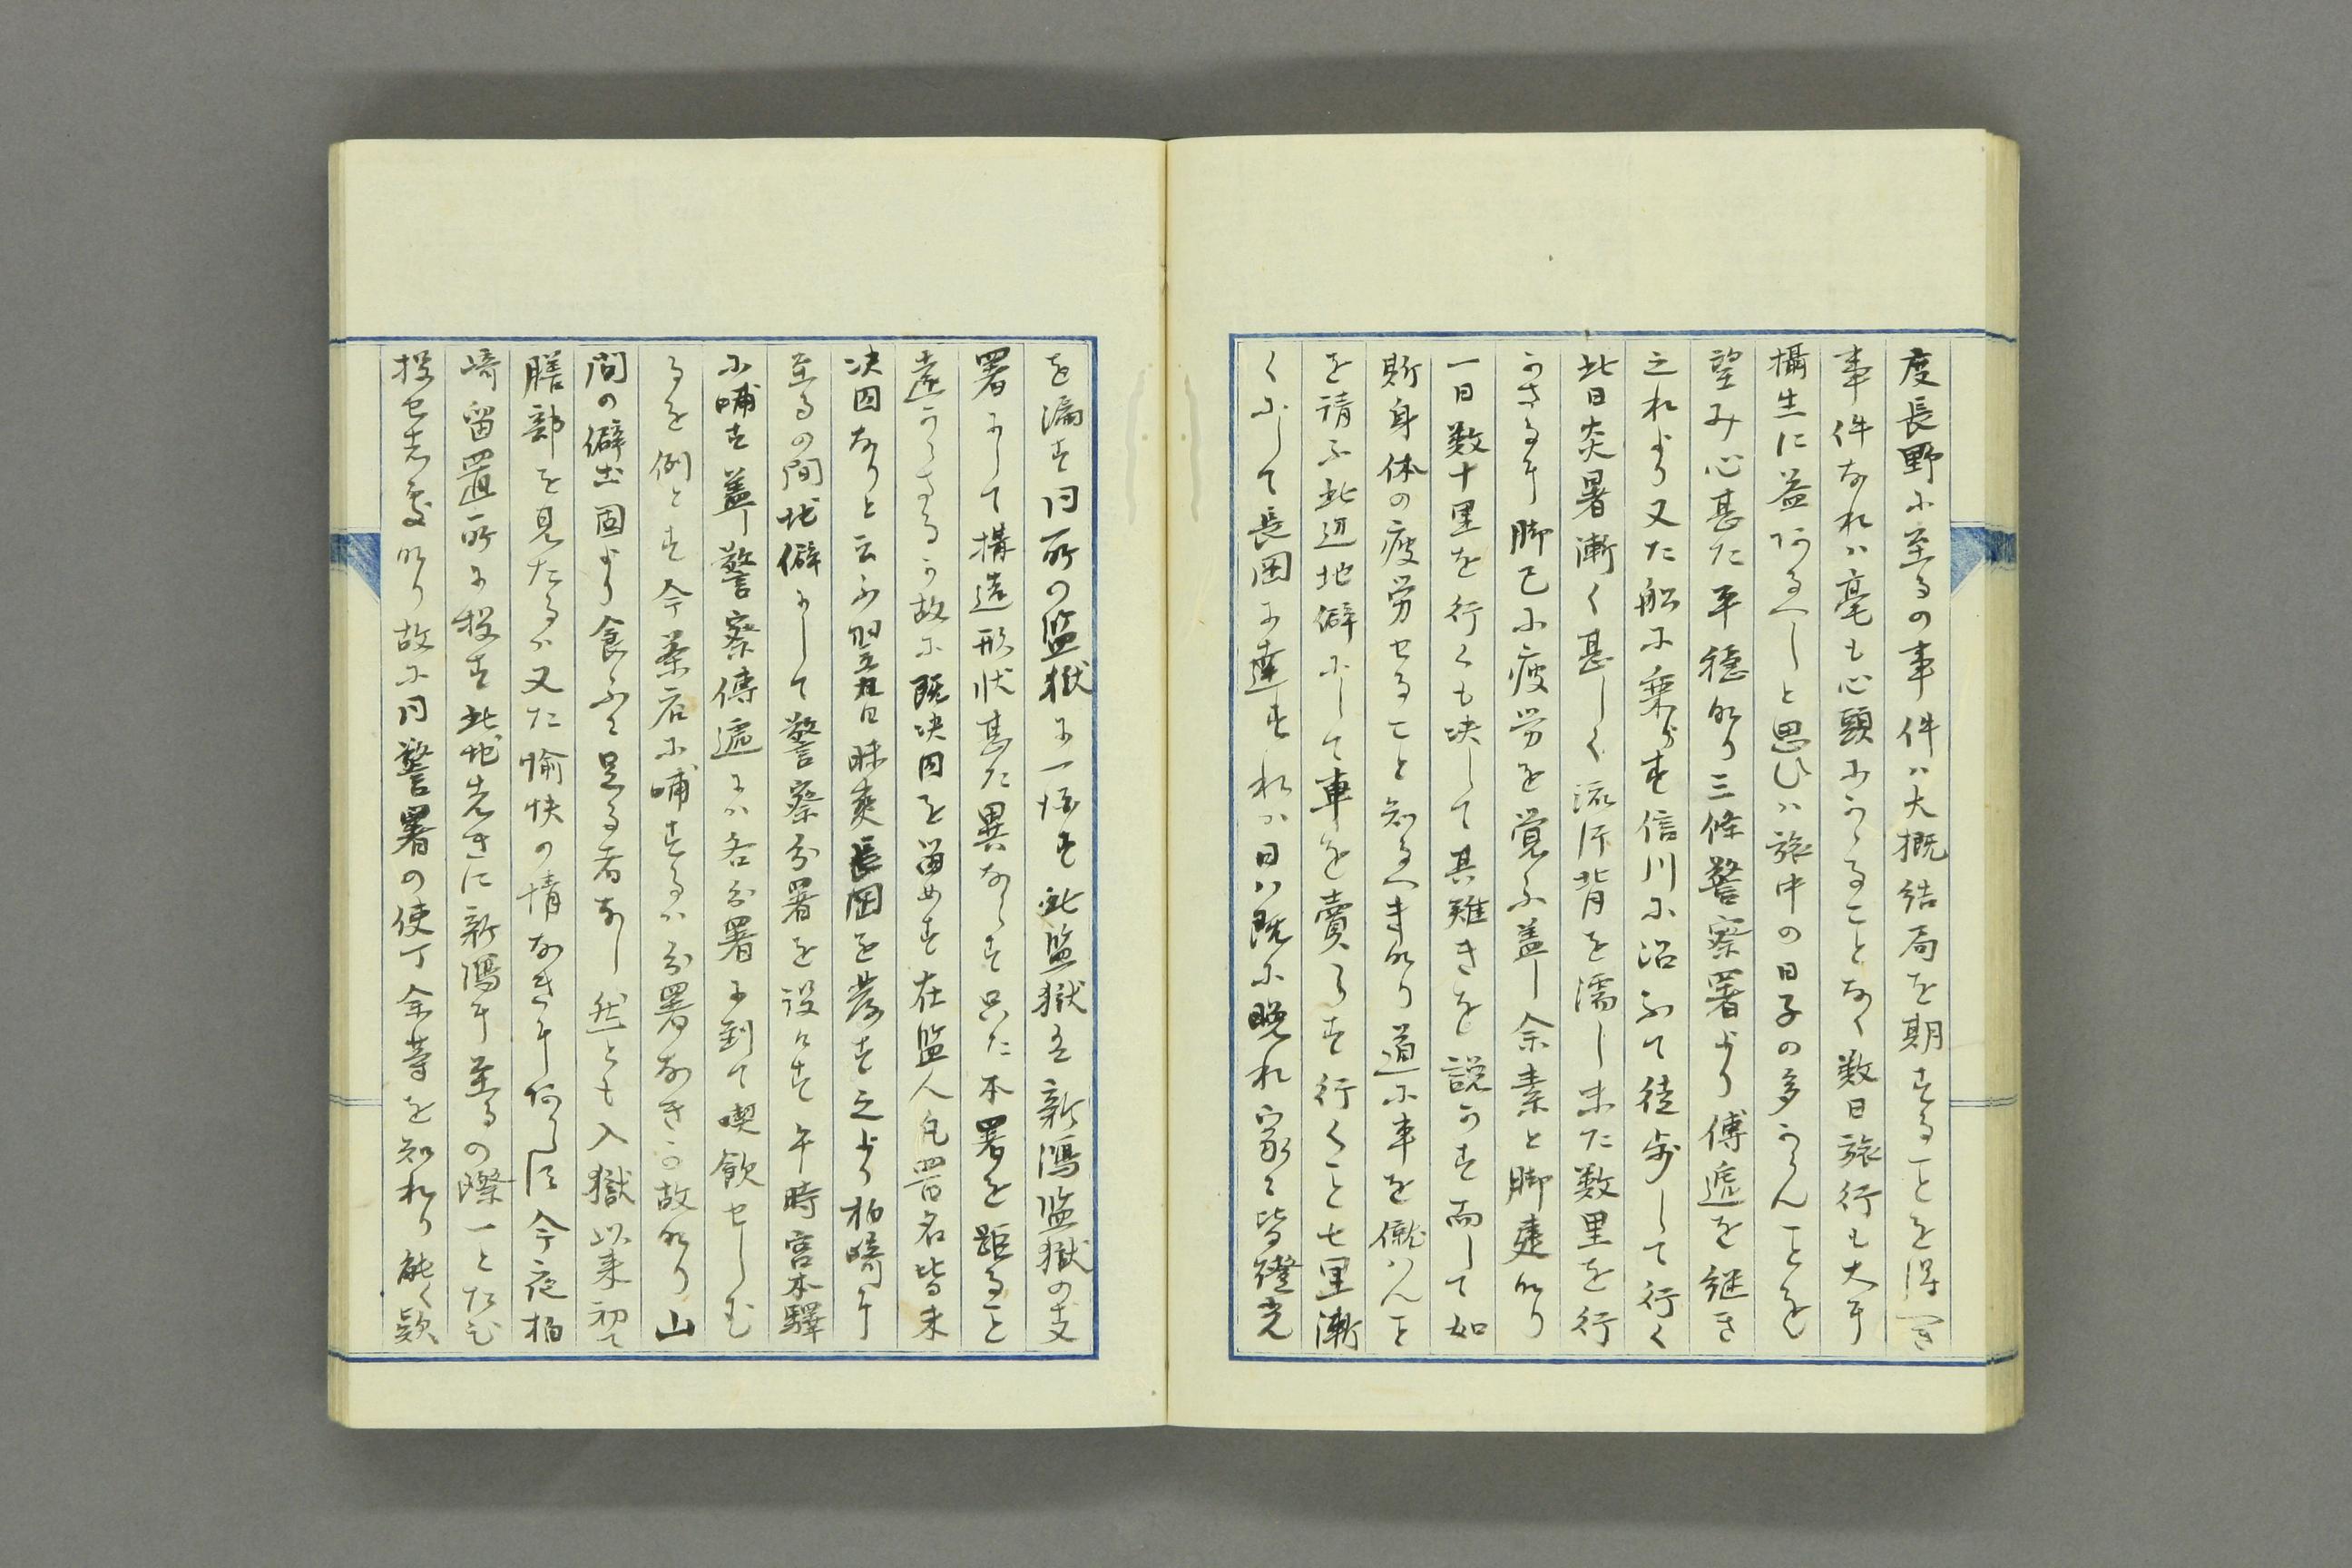 度長野に至るの事件ハ大概結局を期することを得へき
事件なれハ毫も心頭にかゝることなく数日旅行も大に
攝生に益あるへしと思ひハ旅中の日子の多からんことを
望み心甚た平穏なり三條警察署より傳逓を継き
之れより又た船に乗らす信川に沿ふて徒歩して行く
此日炎暑漸く甚しく流汗背を濡し未た数里を行
かさるに脚已に疲労を覚ふ蓋し余素と脚健なり
一日数十里を行くも决して其難きを説かす而して如
斯身体の疲労せること知るへきなり道に車を僦ハんこと
を請ふ此辺地僻にして車を賣らす行くこと七里漸
くにして長岡に達すれハ日ハ既に晩れ家々皆燈光
を漏す同所の監獄に一宿す此監獄ハ新潟監獄の支
署にして構造形状甚た異ならす只た本署を距ること
遠からさるか故に既决囚を留めす在監人凡 名皆未
决囚なりと云ふ翌 日昧爽長岡を発す之より柏﨑に
至るの間地僻にして警察分署を設けす午時宮本驛
に哺す蓋し警察傳逓にハ各分署に到て喫飲せしむ
るを例とす今茶店に哺するハ分署なきか故なり山
間の僻土固より食ふに足る者なし然とも入獄以来初て
膳部を見たるハ又た愉快の情なきに 今夜柏
﨑留置所に投す此地先きに新潟に至るの際一とたひ
投せし處なり故に同警署の使丁余等を知れり能く款